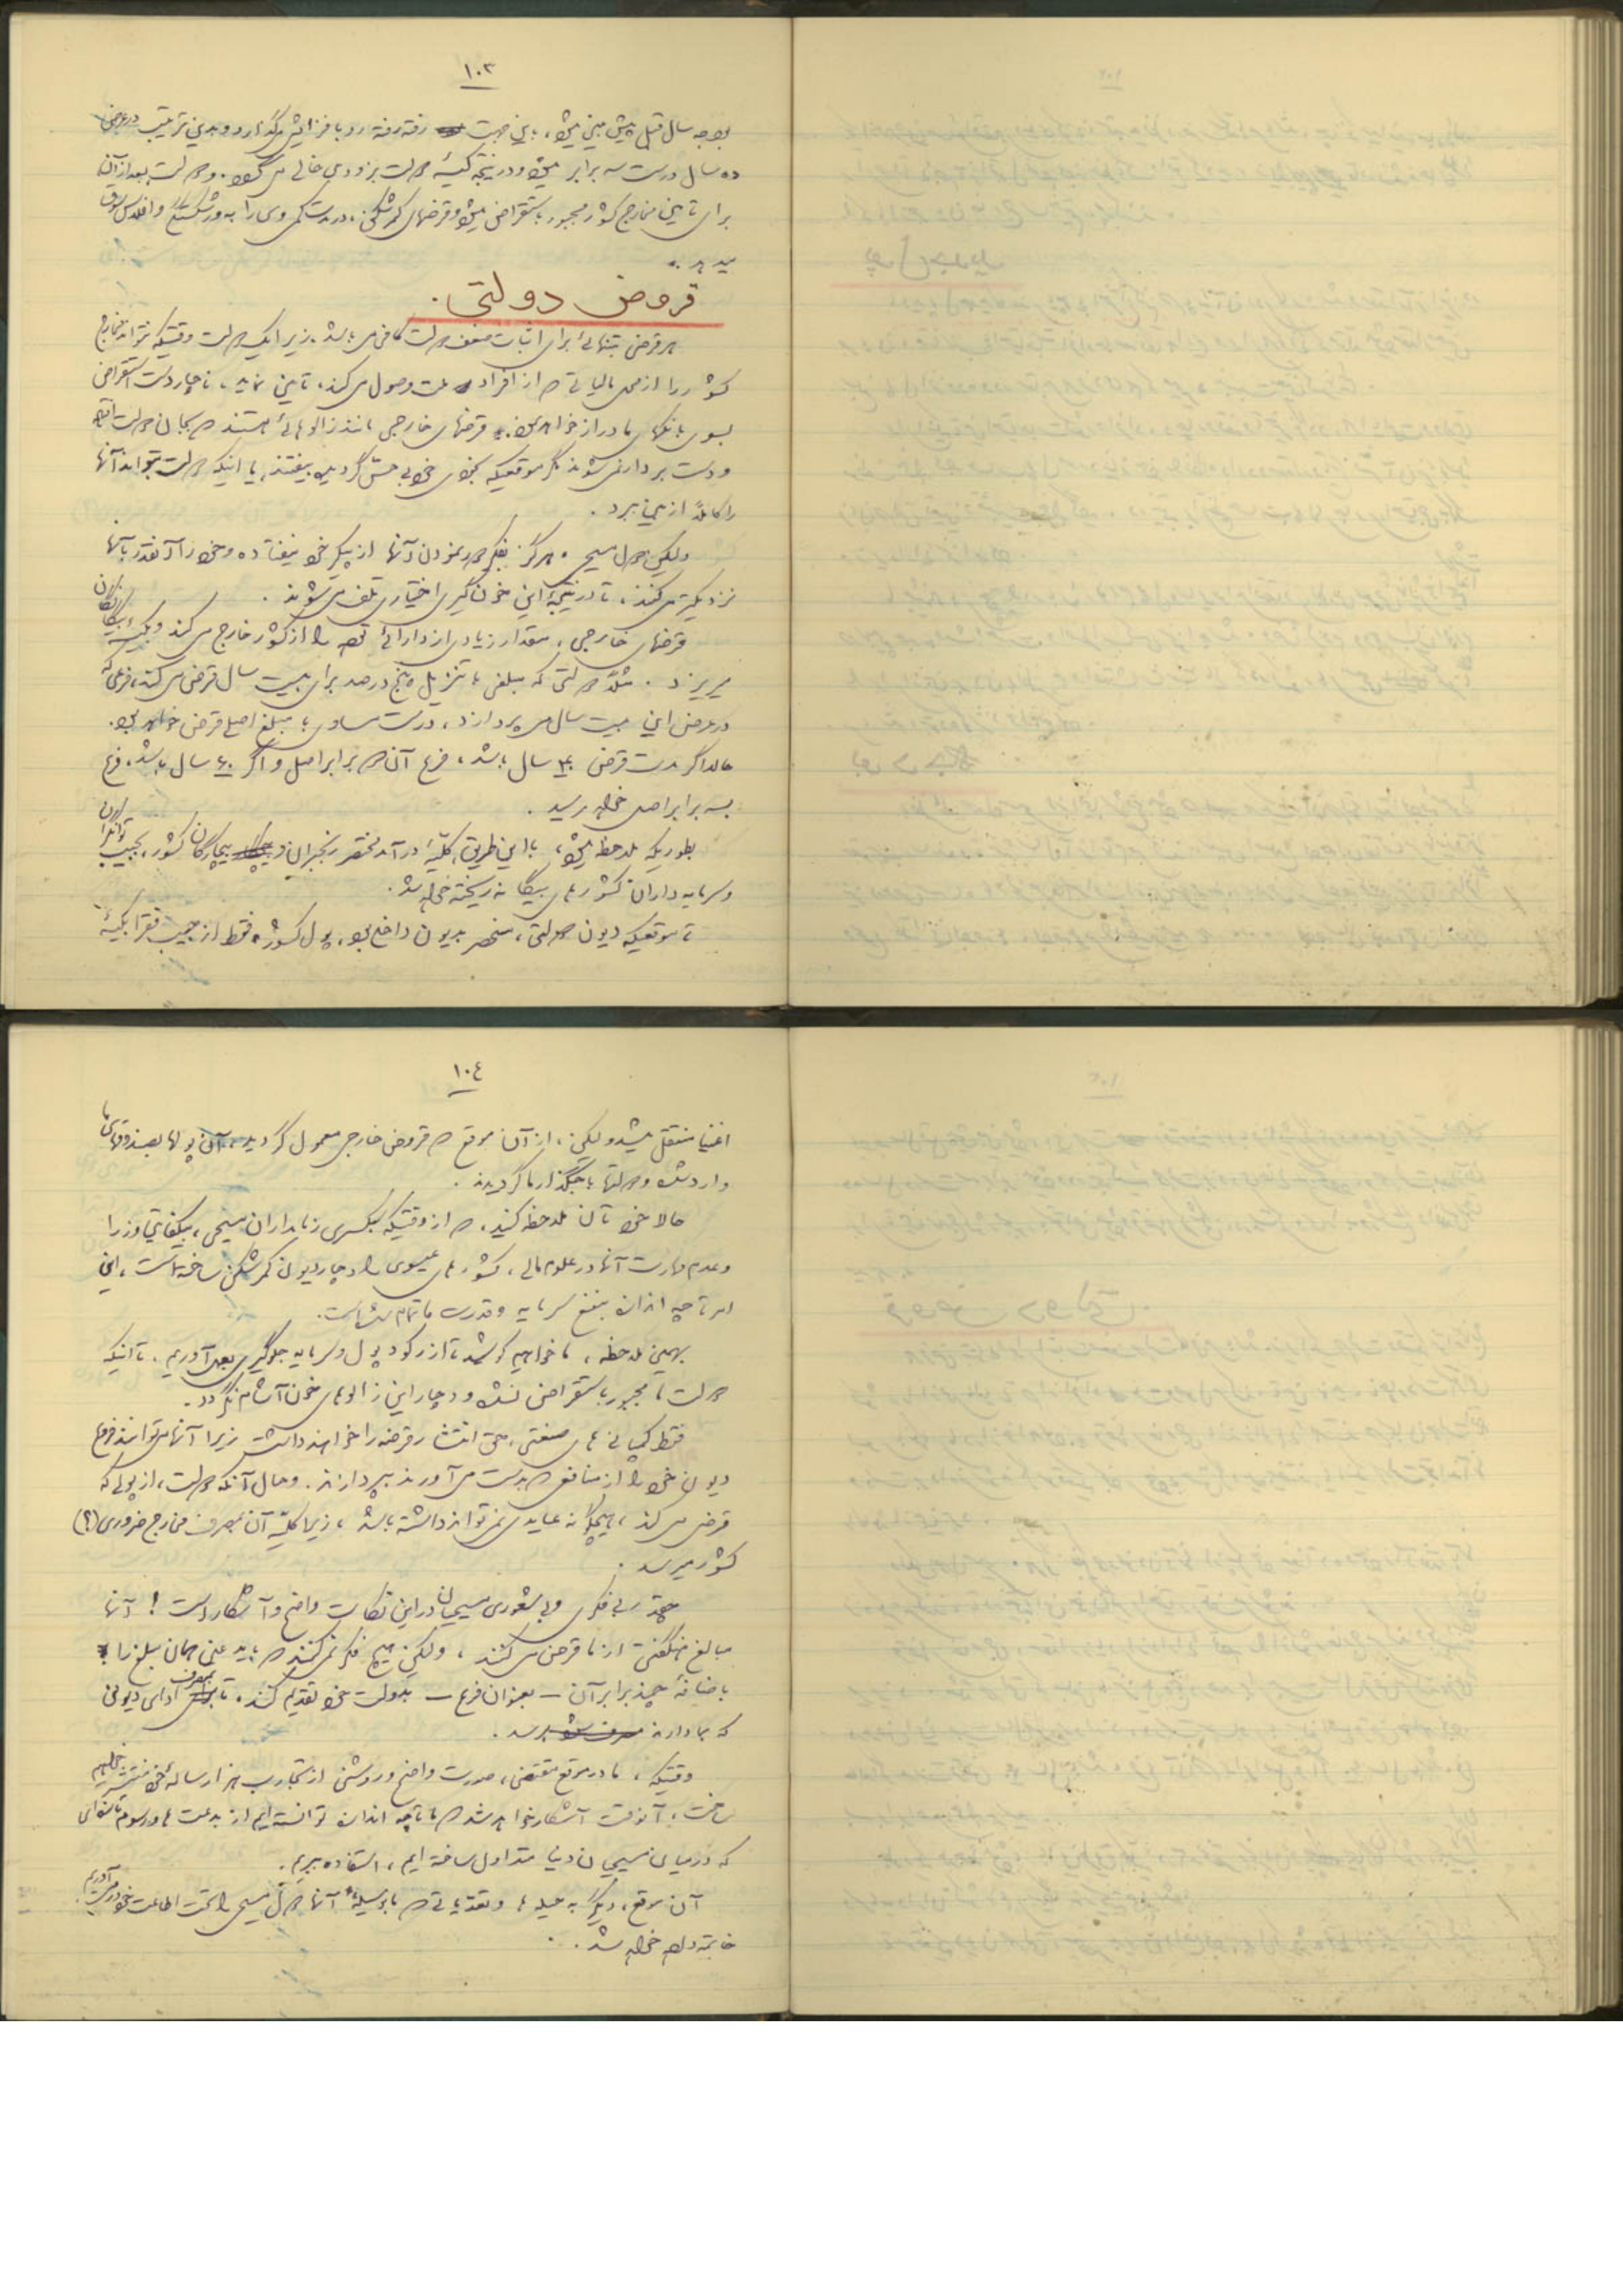 ١٠٣
بودجه سال قبل پیش بینی میشود، باین جهت رفته رفته رو بافزایش میگذارد و بدین ترتیب در عرض
ده سال درست سه برابر میشود و در نتیجه کیسهٔ دولت بزودی خالی می گردد. دولت بعد از آن
برای تأمین مخارج کشور مجبور باستقراض میشود و قرضهای کمرشکن، در مدت کمی وی را به ورشکستگی و افلاس سوق
میدهد.
قروض دولتی.
هر قرض بتنهائی برای اثبات ضعف دولت کافی می باشد. زیرا یک دولت وقتیکه نتواند مخارج
کشور را از محل مالیاتی که از افراد ملت وصول می کند، تأمین نماید، ناچار دست استقراض
بسوی بانکهای ما دراز خواهد نمود. قرضهای خارجی مانند زالوهائی هستند که بجان دولت افتاده
و دست بردار نمی شوند مگر موقعیکه بخودی خود بی حس گردیده بیفتند، یا اینکه دولت بتواند آنها
را کاملاً از بین ببرد.
ولیکن دول مسیحی هرگز بفکر دور نمودن آنها از پیکر خود نیفتاده و خود را آنقدر بآنها
نزدیکتر می کنند، تا در نتیجهٔ این خون گیری اختیاری تلف می شوند.
قرضهای خارجی، مقدار زیادی از دارائی توده را از کشور خارج می کند و بکیسهٔ بیگانگان
میریزد. مثلاً دولتی که مبلغی با تنزیل پنج درصد برای بیست سال قرض می کند، فرعی که
در عرض این بیست سال می پردازد، درست مساوی با مبلغ اصل قرض خواهد بود.
حالا اگر مدت قرض ٤٠ سال باشد، فرع آن دو برابر اصل و اگر ٦٠ سال باشد، فرع
بسه برابر اصل خواهد رسید.
بطوریکه ملاحظه میشود، با این طریق، کلیهٔ درآمد مختصر رنجبران و بیچارگان کشور، بجیب توانگران
و سرمایه داران کشورهای بیگانه ریخته خواهد شد.
تا موقعیکه دیون دولتی، منحصر بدیون داخلی بود، پول کشور فقط از جیب فقرا بکیسهٔ
١٠٤
اغنیا منتقل میشد ولیکن، از آن موقع که قروض خارجی معمول گردید، آن پولها بصندوقهای ما
وارد شده و دولتها باجگذار ما گردیدند.
حالا خودتان ملاحظه کنید، که از وقتیکه سبکسری زمامداران مسیحی، بیکفایتی وزرا
و عدم مهارت آنها در علوم مالی، کشورهای عیسوی را دچار دیون کمرشکن ساخته است، این
امر تا چه اندازه بنفع سرمایه و قدرت ما تمام شده است.
بهمین ملاحظه، ما خواهیم کوشید تا از رکود پول و سرمایه جلوگیری بعمل آوریم. تا اینکه
دولت ما مجبور باستقراض نشده و دچار این زالوهای خون آشام نگردد.
فقط کمپانی های صنعتی، حق انتشار قرضه را خواهند داشت زیرا آنها می توانند فرع
دیون خود را از منافعی که بدست می آورند بپردازند. و حال آنکه دولت، از پولی که
قرض می کند، هیچگونه عایدی نمی تواند داشته باشد، زیرا کلیهٔ آن بمصرف مخارج ضروری (؟)
کشور میرسد.
چقدر بی فکری و بی شعوری مسیحیان در این نکات واضح و آشکار است! آنها
مبالغ هنگفتی از ما قرض می کنند، ولیکن هیچ فکر نمی کنند که باید عین همان مبلغ را
باضافهٔ چند برابر آن – بعنوان فرع – بدولت خود تقدیم کنند، تا بمصرف ادای دیونی
که بما دارند برسد.
وقتیکه، ما در موقع مقتضی، صورت واضح و روشنی از تجارب هزار سالهٔ خود منتشر خواهیم
ساخت، آنوقت آشکار خواهد شد که ما تا چه اندازه توانسته ایم از بدعت ها و رسوم ناستوده ای
که در میان مسیحیان دنیا متداول ساخته ایم، استفاده ببریم.
آن موقع، دیگر به حیله ها و تعدیاتی که بوسیلهٔ آنها دول مسیحی را تحت اطاعت خود در می آوریم
خاتمه داده خواهد شد.